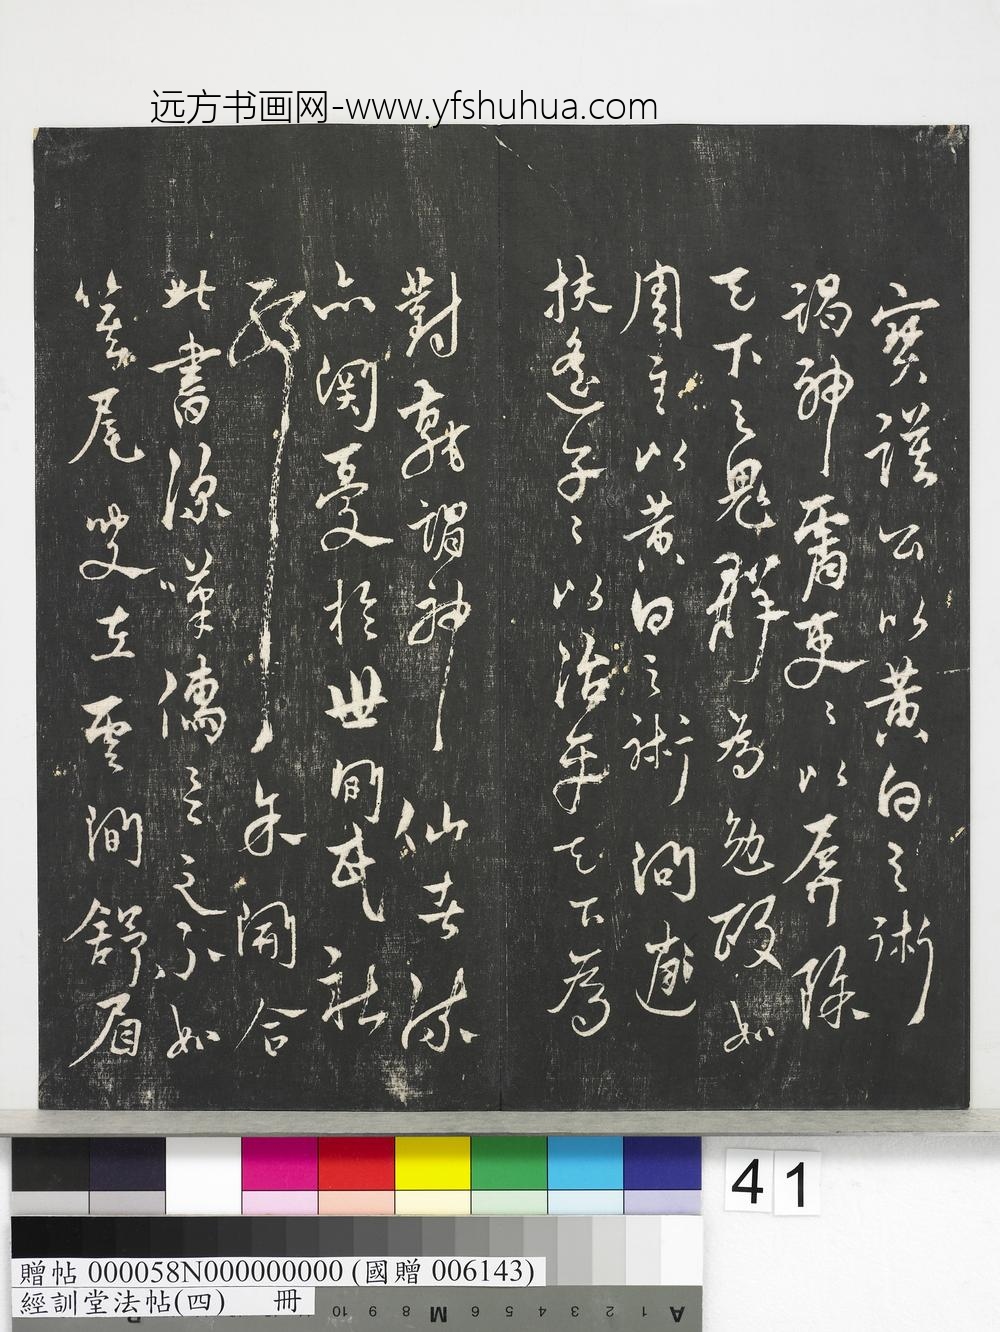 远方书画网-www.yfshuhua.com
寶護公以黄白之術
謁神霄更〻以屏除
天下之鬼群為勉改如
周主以黄白之術問遊
扶遙子〻以治平天下為
對乾謂神仙者流
亦関憂於世間民社
耶 余開合
此書深嘆儒之之不如
笠尾叟在雲間舒眉
41
贈帖 000058N000000000 (國贈 006143)
經訓堂法帖(四) 冊